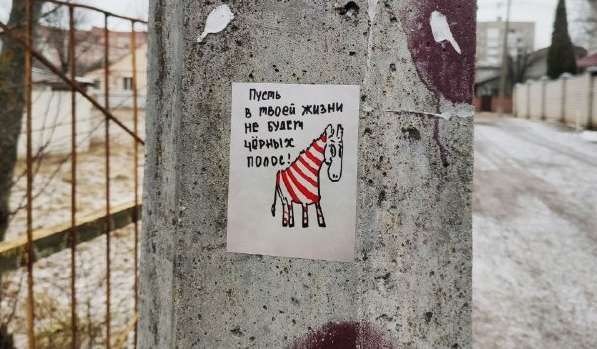 Пусть
в твоей жизни
не будет
чёрных
полос!